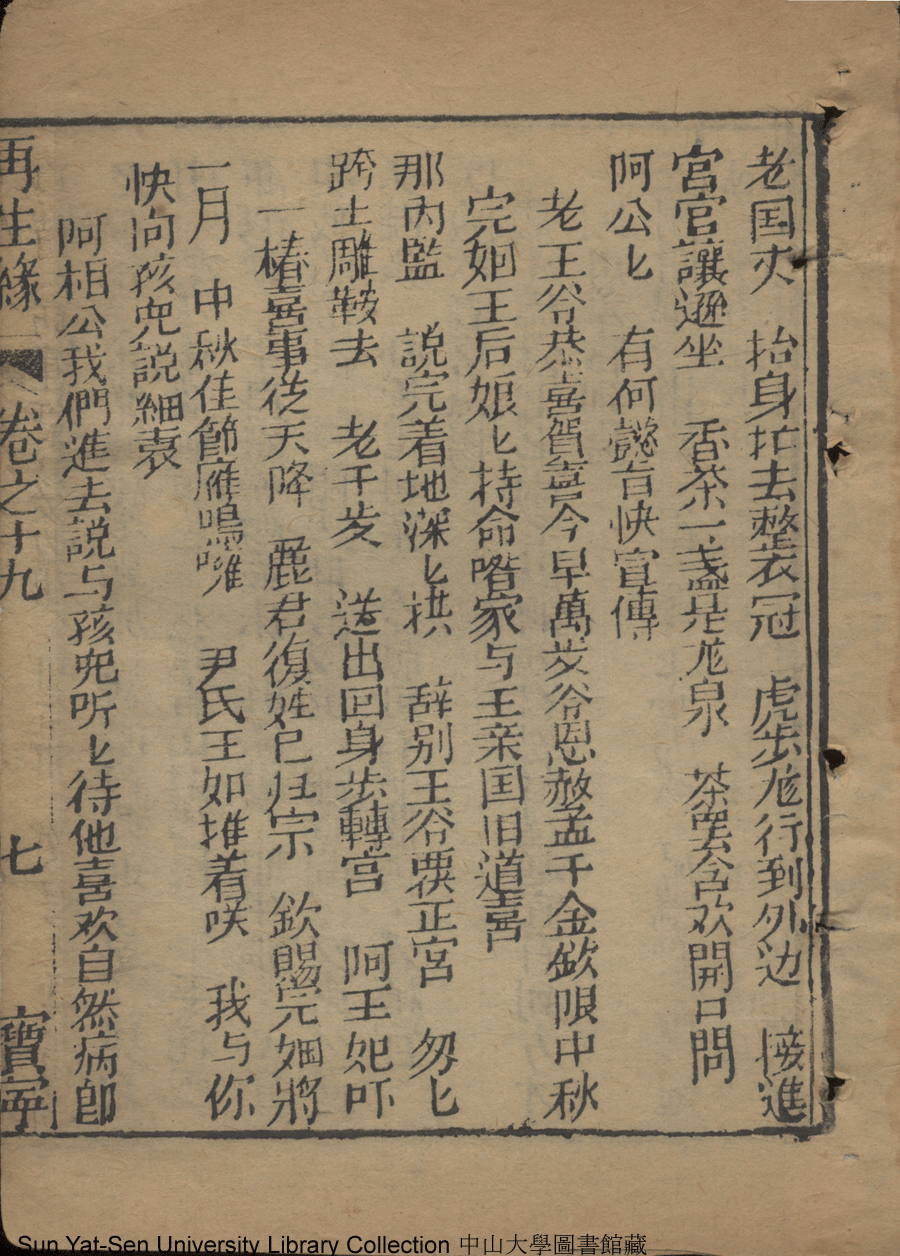 老国丈　抬身拍去整衣冠　虎步尨行到外边　接進
宮官讓遜坐　香茶一盞是尨泉　茶罢含欢開口問
阿公匕　有何懿旨快宣傳
老王谷恭喜賀喜今早萬岁谷恩赦孟千金欽限中秋
完姻王后娘匕持命喒家与王亲国旧道喜
那内監　説完着地深匕拱　辞别王谷覆正宮　匆匕
跨土雕鞍去　老千岁　送出回身步轉宮　阿王妃吓
一樁喜事従天降　麗君復姓已归宗　欽賜完姻將
一月　中秋佳節雁鳴嗈　尹氏王如推着咲　我与你
快向孩兜説細衷
阿相公我們進去説与孩兜听匕待他喜欢自然病卽
再生緣　卷之十九　七　寶寧
Sun Yat-Sen University Library Collection 中山大學圖書館藏